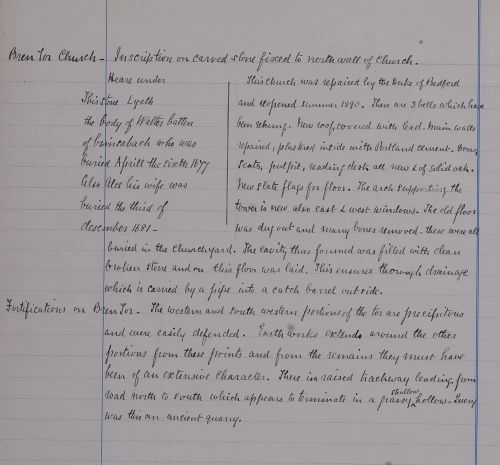 Bren Tor Church - Inscription on carved stone fixed to north wall of church.
Heare under
This stone Lyeth
the body of Walter batten
of brinsabach who was
buried Aprill the sixth 1677
Also Alce his wife was
buried the third of
desember 1681 -
This church was repaired by the Duke of Bedford
and reopened summer 1890. There are 3 bells which have
been rehung. New roof, covered with lead. Main walls
repaired, plastered inside with Portland cement. Doors,
Seats, pulpit, reading desk all new & of solid oak.
New slate flags for floor. The arch supporting the
tower is new also east & west windows. The old floor
was dug out and many bones removed - these were all
buried in the churchyard. The cavity thus formed was filled with clean
broken stone and on this floor was laid. This ensures thorough drainage
which is carried by a pipe into a catch barrel outside.
Fortifications on Bren Tor - The western and south western portions of the tor are precipitous
and were easily defended. Earth works extends around the other
portions from these points and from the remains they must have
been of an extensive character. There is raised trackway leading from
road north to south which appears to terminate in a grassy shallow hollow - Query
was this an ancient quarry.